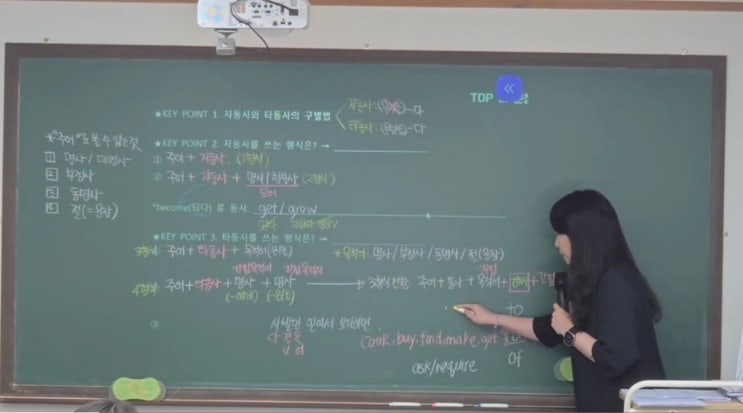 TOP
★KEY POINT 1. 자동사와 타동사의 구별법
자동사:
타동사:
*"주어"로 쓸 수 있는 것
1 명사/대명사
2 부정사
3 동명사
4 절(=문장)
★KEY POINT 2. 자동사를 쓰는 형식은? →
① 주어 + 자동사. (1형식)
② 주어 + 자동사 + 명사/형용사 (2형식)
보어
*become(되다) 류 동사: get/grow
★KEY POINT 3. 타동사를 쓰는 형식은? →
3형식 주어 + 타동사 + 목적어
*목적어: 명사/부정사/동명사/절(문장)
간접목적어 직접목적어
4형식 주어 + 타동사 + 명사 + 명사 → 3형식 전환: 주어 + 동사 + 목적어 + 전치사 + 간목
직접
(~에게) (~을/를)
③
to
cook, buy, find, make, get
ask/require of